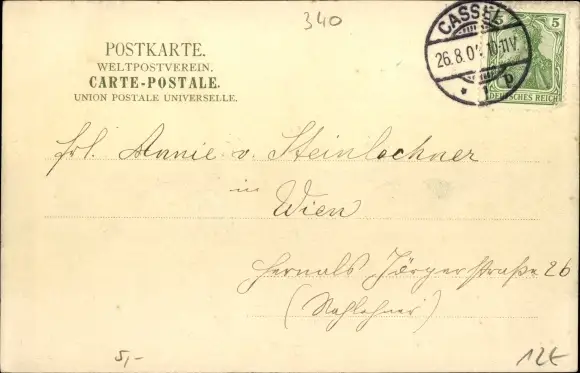 340
CASSEL
26.8.0 10-11V.
* 1 p
5
DEUTSCHES REICH
POSTKARTE.
WELTPOSTVEREIN.
CARTE-POSTALE.
UNION POSTALE UNIVERSELLE.
Frl. Annie v. Steinlechner
in
Wien
Hernals Jörgerstraße 26
5,-
12€